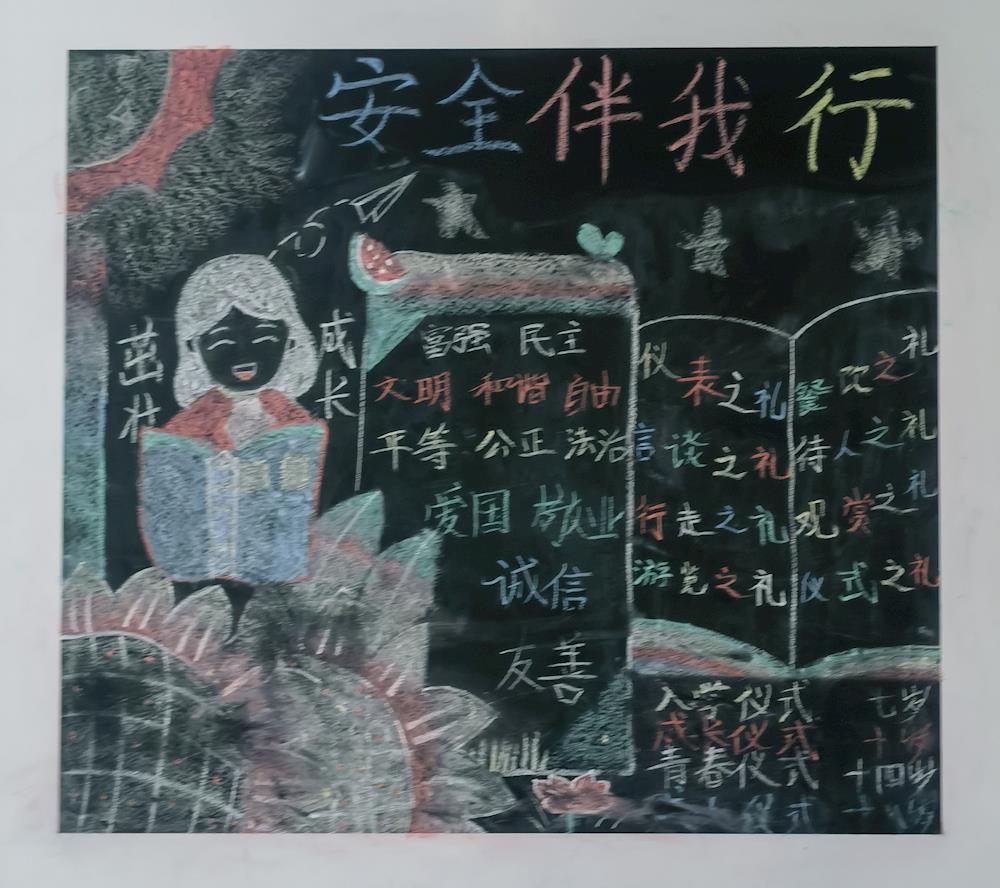 安全伴我行
茁壮
成长
富强 民主
文明 和谐 自由
平等 公正 法治
爱国 敬业
诚信
友善
仪表之礼
言谈之礼
行走之礼
游览之礼
餐饮之礼
待人之礼
观赏之礼
仪式之礼
入学仪式 七岁
成长仪式 十岁
青春仪式 十四岁
仪式 十